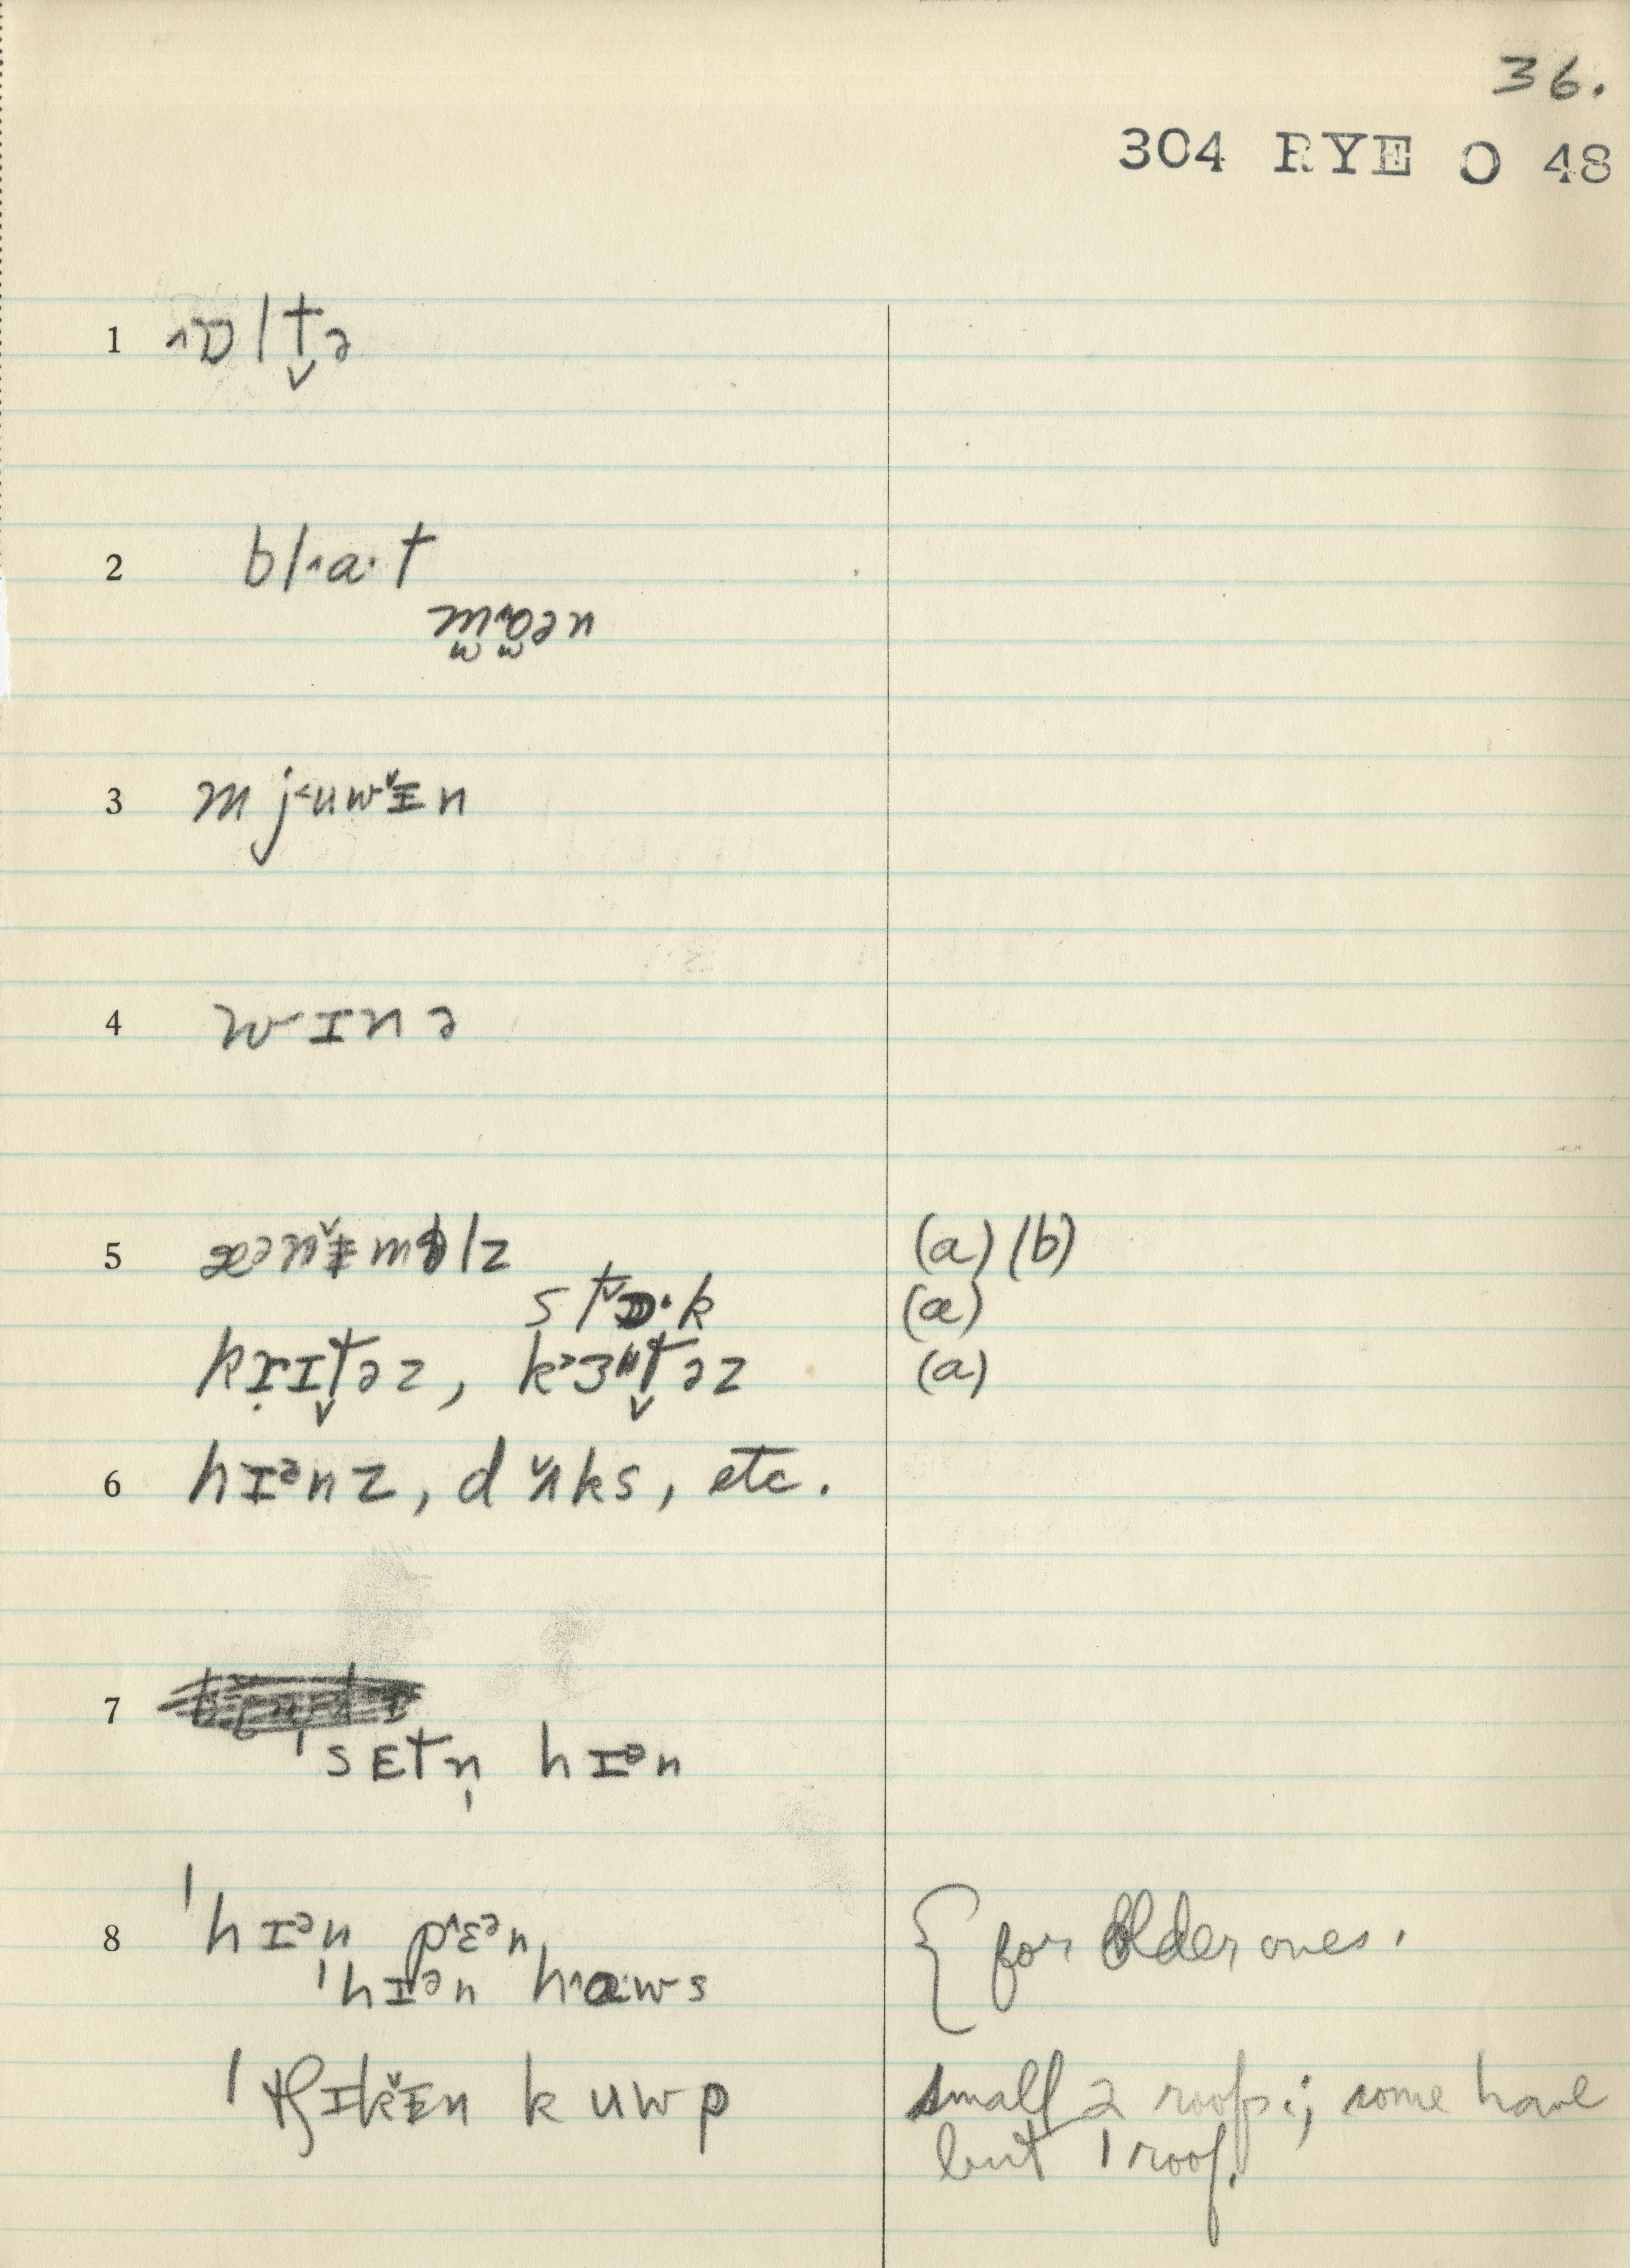 36.
304 RYE O 48
1 ˄ɒltə̬
2 bl˄a·t
m˄ɒən
3 mj˂uwɪ̵̆n
4 wɪnə
5 ænɪ̵̆məlz (a) (b)
st̬ɒ·k (a)
krɪt̬əz, k˃ɜt̬əz (a)
6 hɪᵊnz, dʌ̆ks, etc.
7 ˈsɛtn̩ hɪᵊn
8 ˈhɪᵊn p˄ɛᵊn {for older ones.
ˈhɪᵊn h˄a·ws
ˈtʃɪkɪ̵̆n kuwp small 2 roofs; some have
but 1 roof.